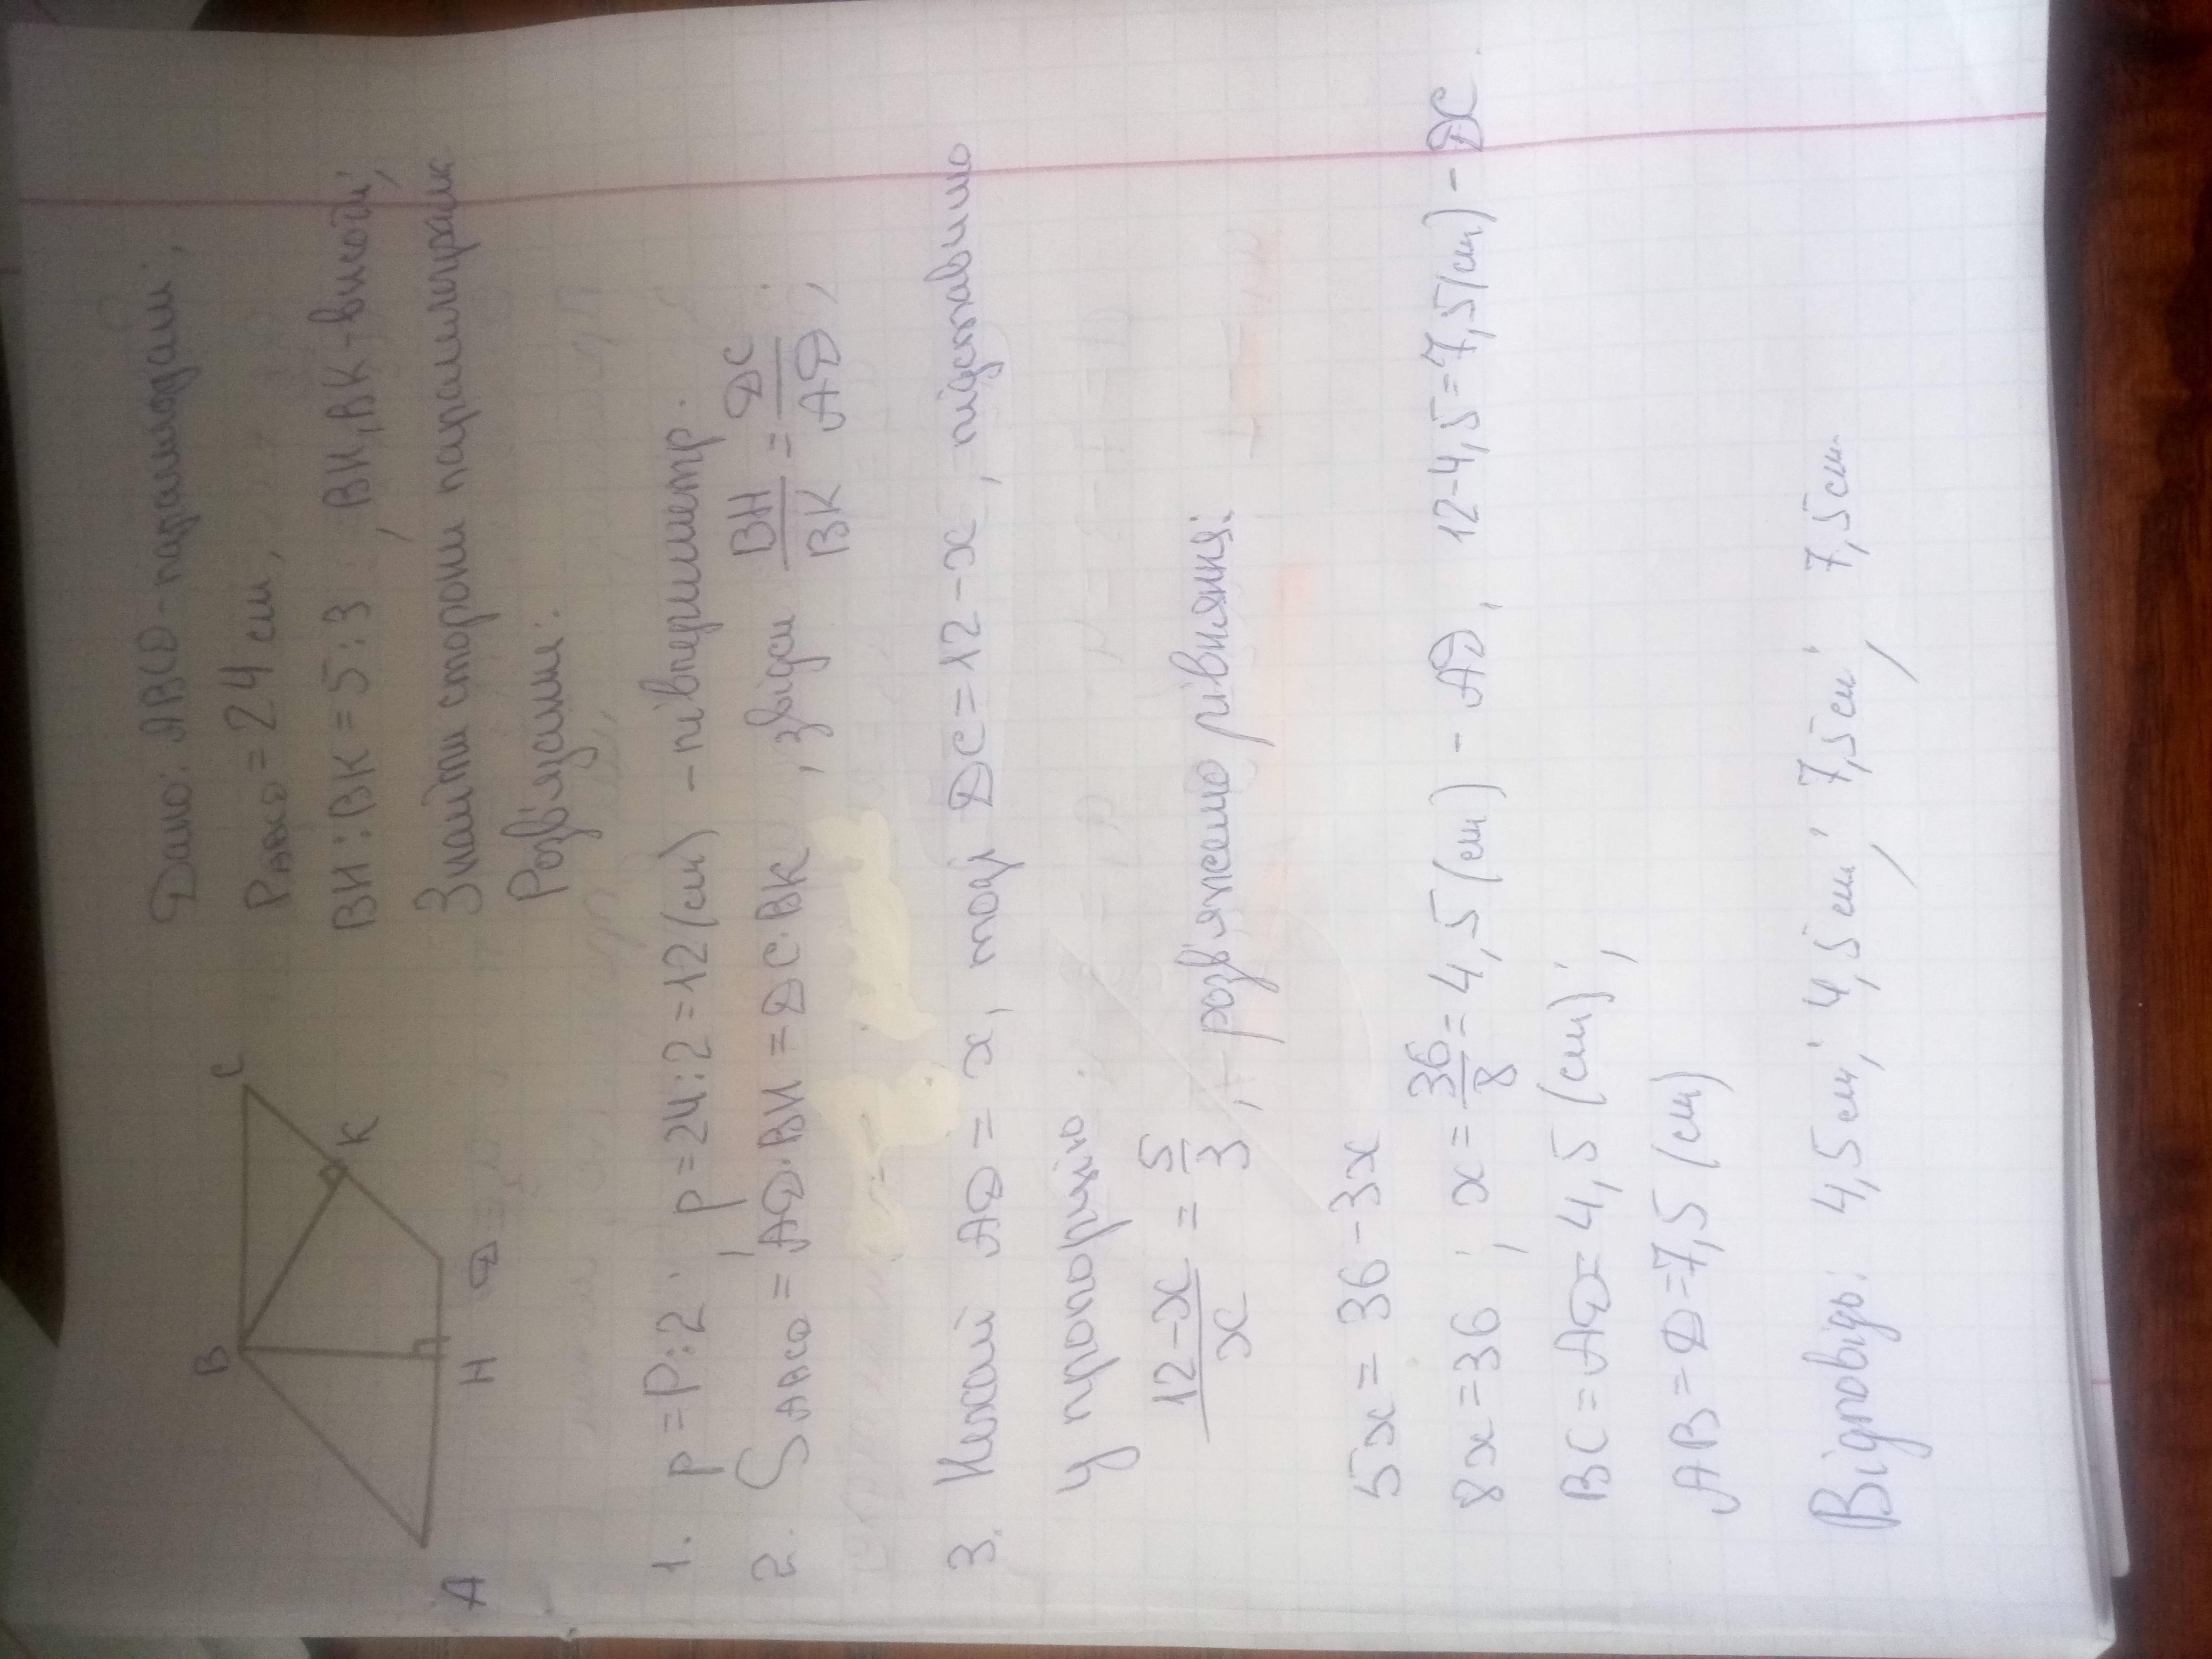 Дано: ABCD - паралелограм;
P ABCD = 24 см,
BH : BK = 5 : 3, BH, BK - висоти;
Знайти сторони паралелограм
Розв'язання:
B
C
K
A
H
D
1. p = P : 2; p = 24 : 2 = 12 (см) - півпериметр.
2. S ABCD = AD · BH = DC · BK, звідси BH/BK = DC/AD;
3. Нехай AD = x, тоді DC = 12 - x, підставимо
у пропорцію
12 - x / x = 5/3, розв'яжемо рівняння:
5x = 36 - 3x
8x = 36; x = 36/8 = 4,5 (см) - AD, 12 - 4,5 = 7,5 (см) - DC.
BC = AD = 4,5 (см);
AB = D = 7,5 (см)
Відповідь: 4,5 см; 4,5 см; 7,5 см; 7,5 см.